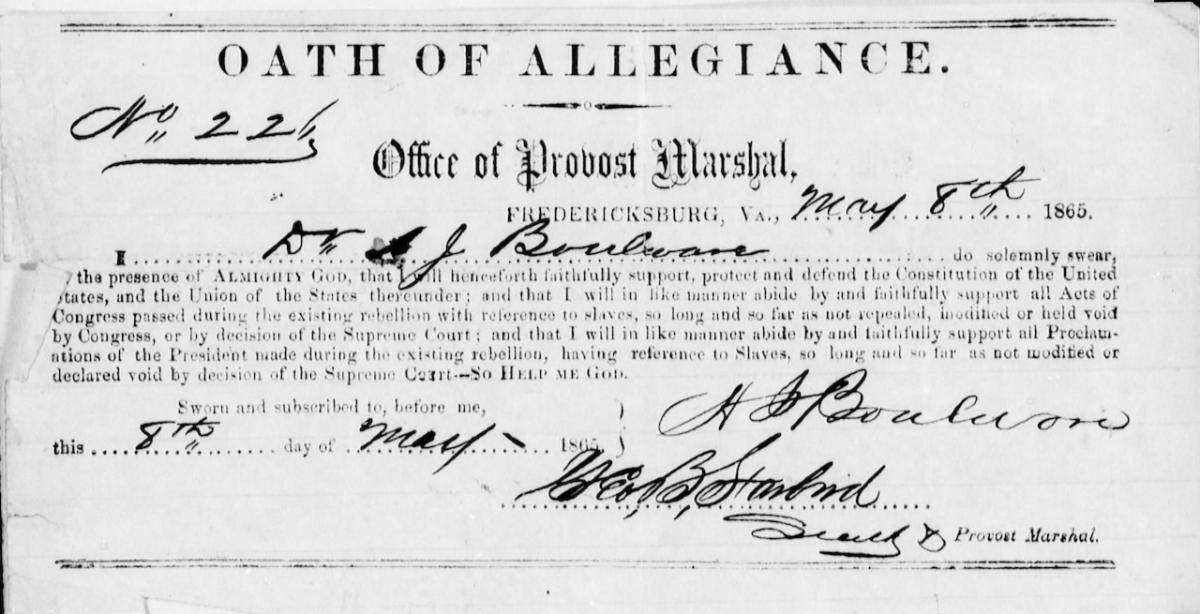 OATH OF ALLEGIANCE.
No 226
Office of Provost Marshal,
FREDERICKSBURG, VA., May 8th 1865.
I Dr J Boulware do solemnly swear,
the presence of ALMIGHTY GOD, that I will henceforth faithfully support, protect and defend the Constitution of the United
States, and the Union of the States thereunder; and that I will in like manner abide by and faithfully support all Acts of
Congress passed during the existing rebellion with reference to slaves, so long and so far as not repealed, modified or held void
by Congress, or by decision of the Supreme Court; and that I will in like manner abide by and faithfully support all Proclam-
ations of the President made during the existing rebellion, having reference to Slaves, so long and so far as not modified or
declared void by decision of the Supreme Court—SO HELP ME GOD.
Sworn and subscribed to, before me,
this 8th day of May 1865
Boulware
Geo, B, Starbird
Provost Marshal.